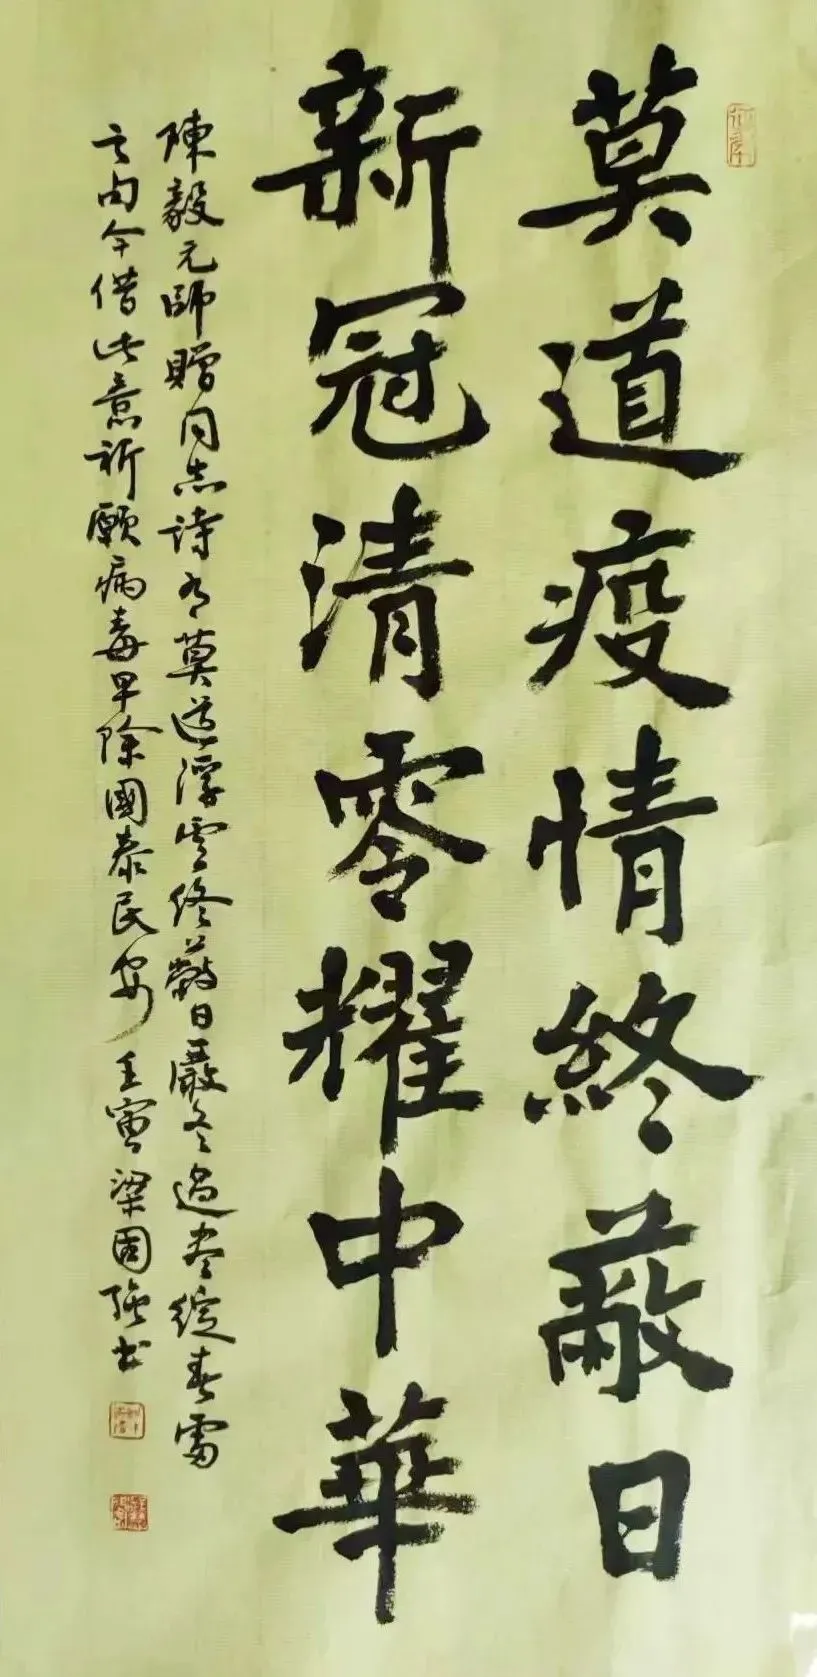 莫道疫情終蔽日
新冠清零耀中華
陳毅元帥贈同志詩有莫道浮雲終蔽日嚴冬過盡綻春雷
之句今借此意祈願病毒早除國泰民安 壬寅梁國強書